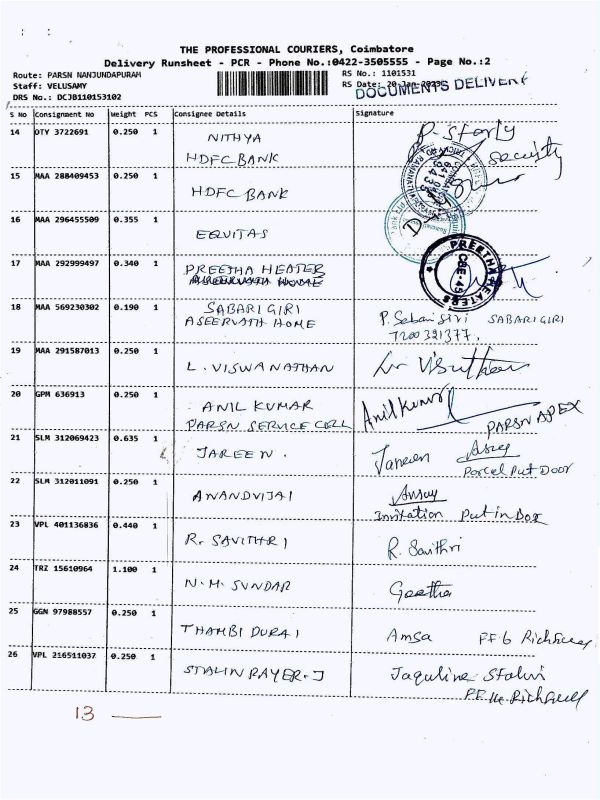 THE PROFESSIONAL COURIERS, Coimbatore
Delivery Runsheet - PCR - Phone No.:0422-3505555 - Page No.:2
Route: PARSN NANJUNDAPURAM
RS No.: 1101531
Staff: VELUSAMY
RS Date: 20-Jan-2023
DOCUMENTS DELIVERY
DRS No.: DCJB110153102
S No Consignment No Weight PCS Consignee Details Signature
14 OTY 3722691 0.250 1 NITHYA
HDFC BANK
Security
15 MAA 288409453 0.250 1 HDFC BANK
16 MAA 296455509 0.355 1 EQUITAS
17 MAA 292999497 0.340 1 PREETHA HEATER
PREETHA HEATERS
CBE-45
18 MAA 569230302 0.190 1 SABARI GIRI
ASEERVATH HOME
P. Sabari Giri SABARI GIRI
7200321377.
19 MAA 291587013 0.250 1 L. VISWANATHAN
20 GPM 636913 0.250 1 ANIL KUMAR Anil Kumar
PARSN SERVICE CELL PARSN APEX
21 SLM 312069423 0.635 1 JAREEN.
Parcel Put Door
22 SLM 312011091 0.250 1 ANANDVIJAI
Invitation Put in Box
23 VPL 401136836 0.440 1 R. SAVITHRI R. Savithri
24 TRZ 15610964 1.100 1 N.M. SUNDAR Geetha
25 GGN 97988557 0.250 1 THAMBI DURAI Amsa FF6
26 VPL 216511037 0.250 1 STALIN RAYER.J Jaquline Stalin
13